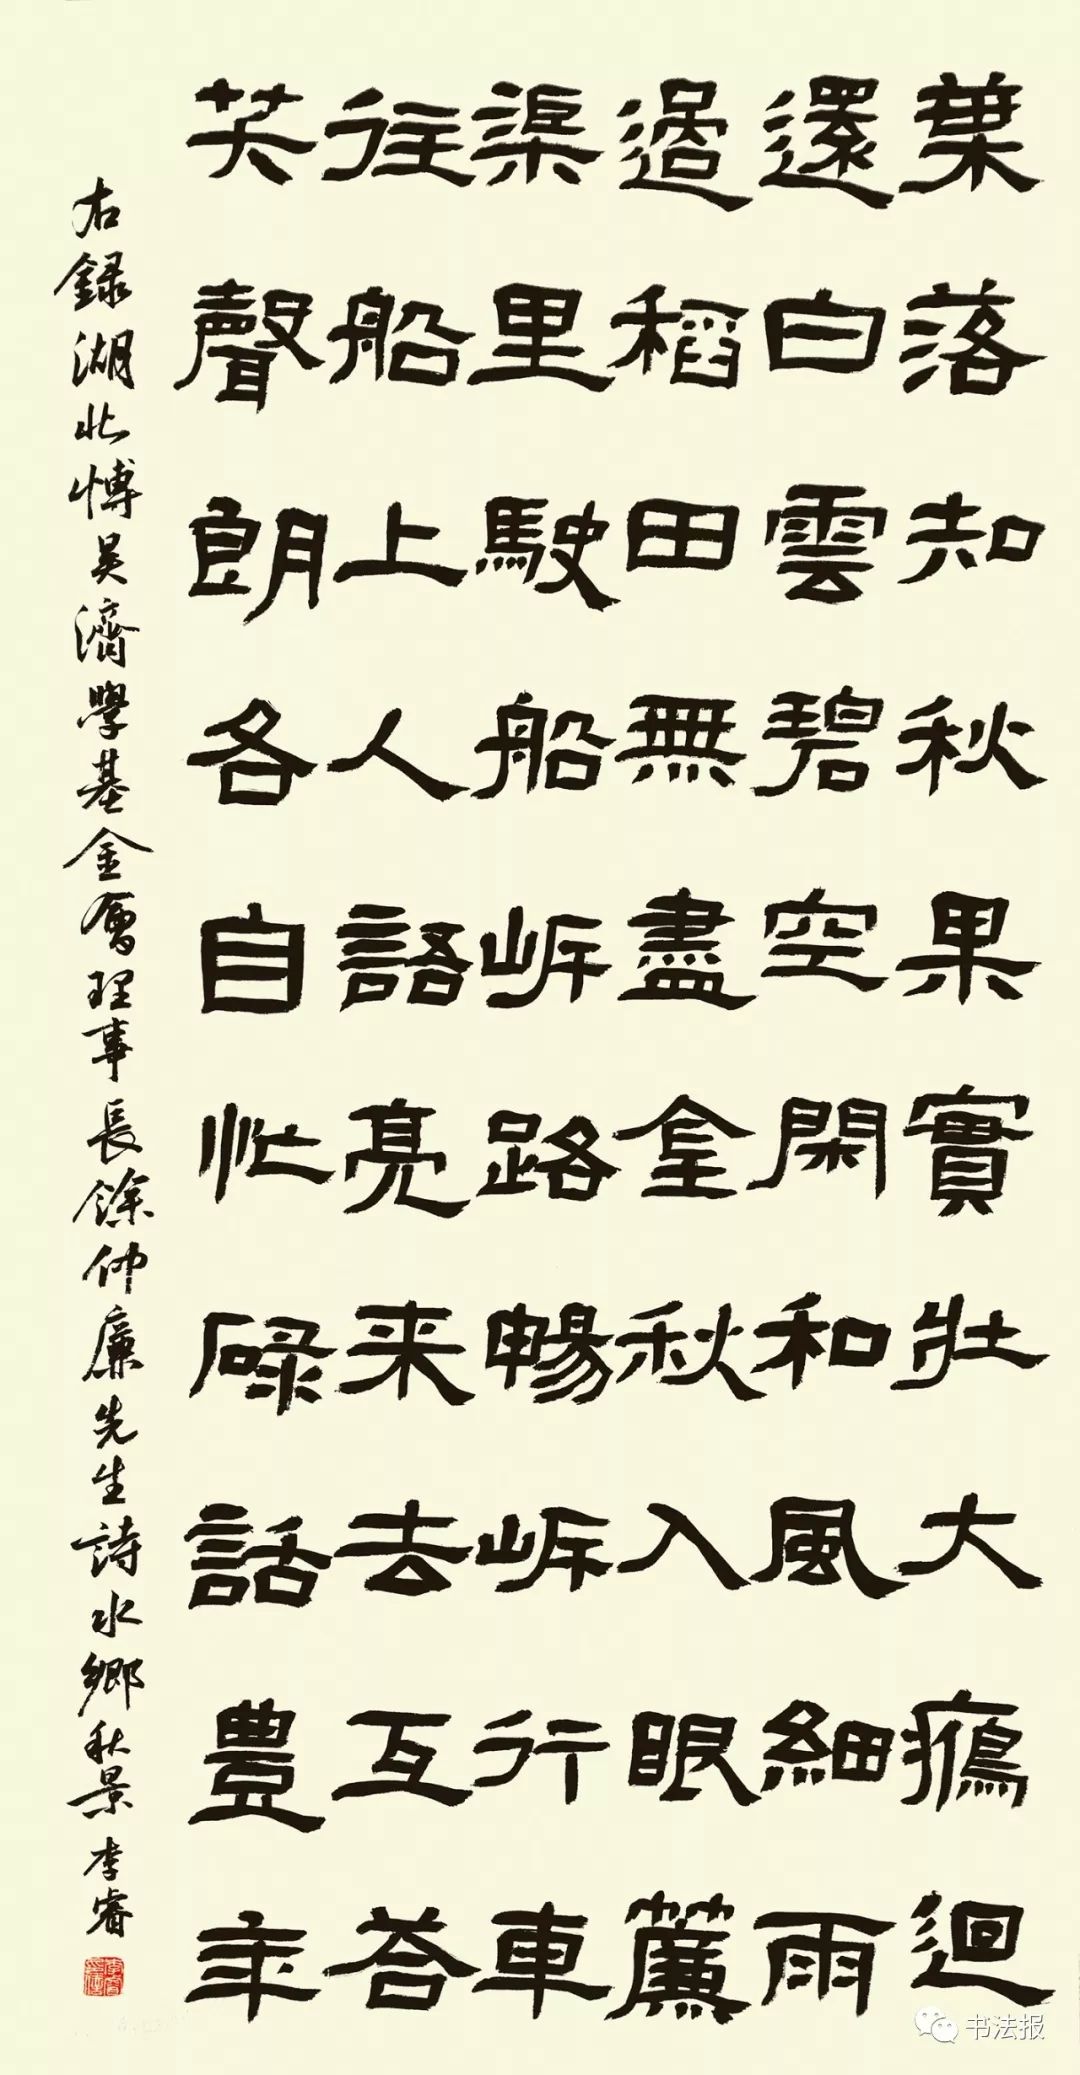 葉落知秋果實壯大鴈迴
還白雲碧空閑和風細雨
過稻田無盡金秋入眼簾
渠里駛船岸路暢岸行車
往船上人語亮来去互荅
笑聲朗各自忙碌話豐年
右録湖北愽昊濟學基金會理事長餘仲廉先生詩水鄉秋景李睿
书法报